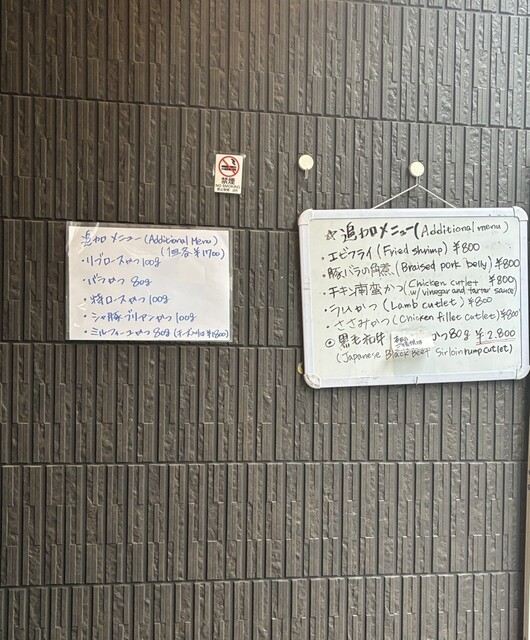 禁煙
NO SMOKING
追加メニュー (Additional Menu)
(1個各¥1700)
・リブロースかつ 100g
・バラかつ 80g
・特ロースかつ 100g
・シャ豚ブリアンかつ 100g
・ミルフィーユかつ 80g
¥1800)
☆追加メニュー(Additional menu)
・エビフライ (Fried shrimp) ¥800
・豚バラの角煮 (Braised pork belly) ¥800
・チキン南蛮かつ (Chicken cutlet w/ vinegar and tartar sauce) ¥800
・らむかつ (Lamb cutlet) ¥800
・ささみかつ (Chicken fillet cutlet) ¥800
◎黒毛和牛 かつ 80g ¥2.800
(Japanese Black Beef Sirloin rump cutlet)